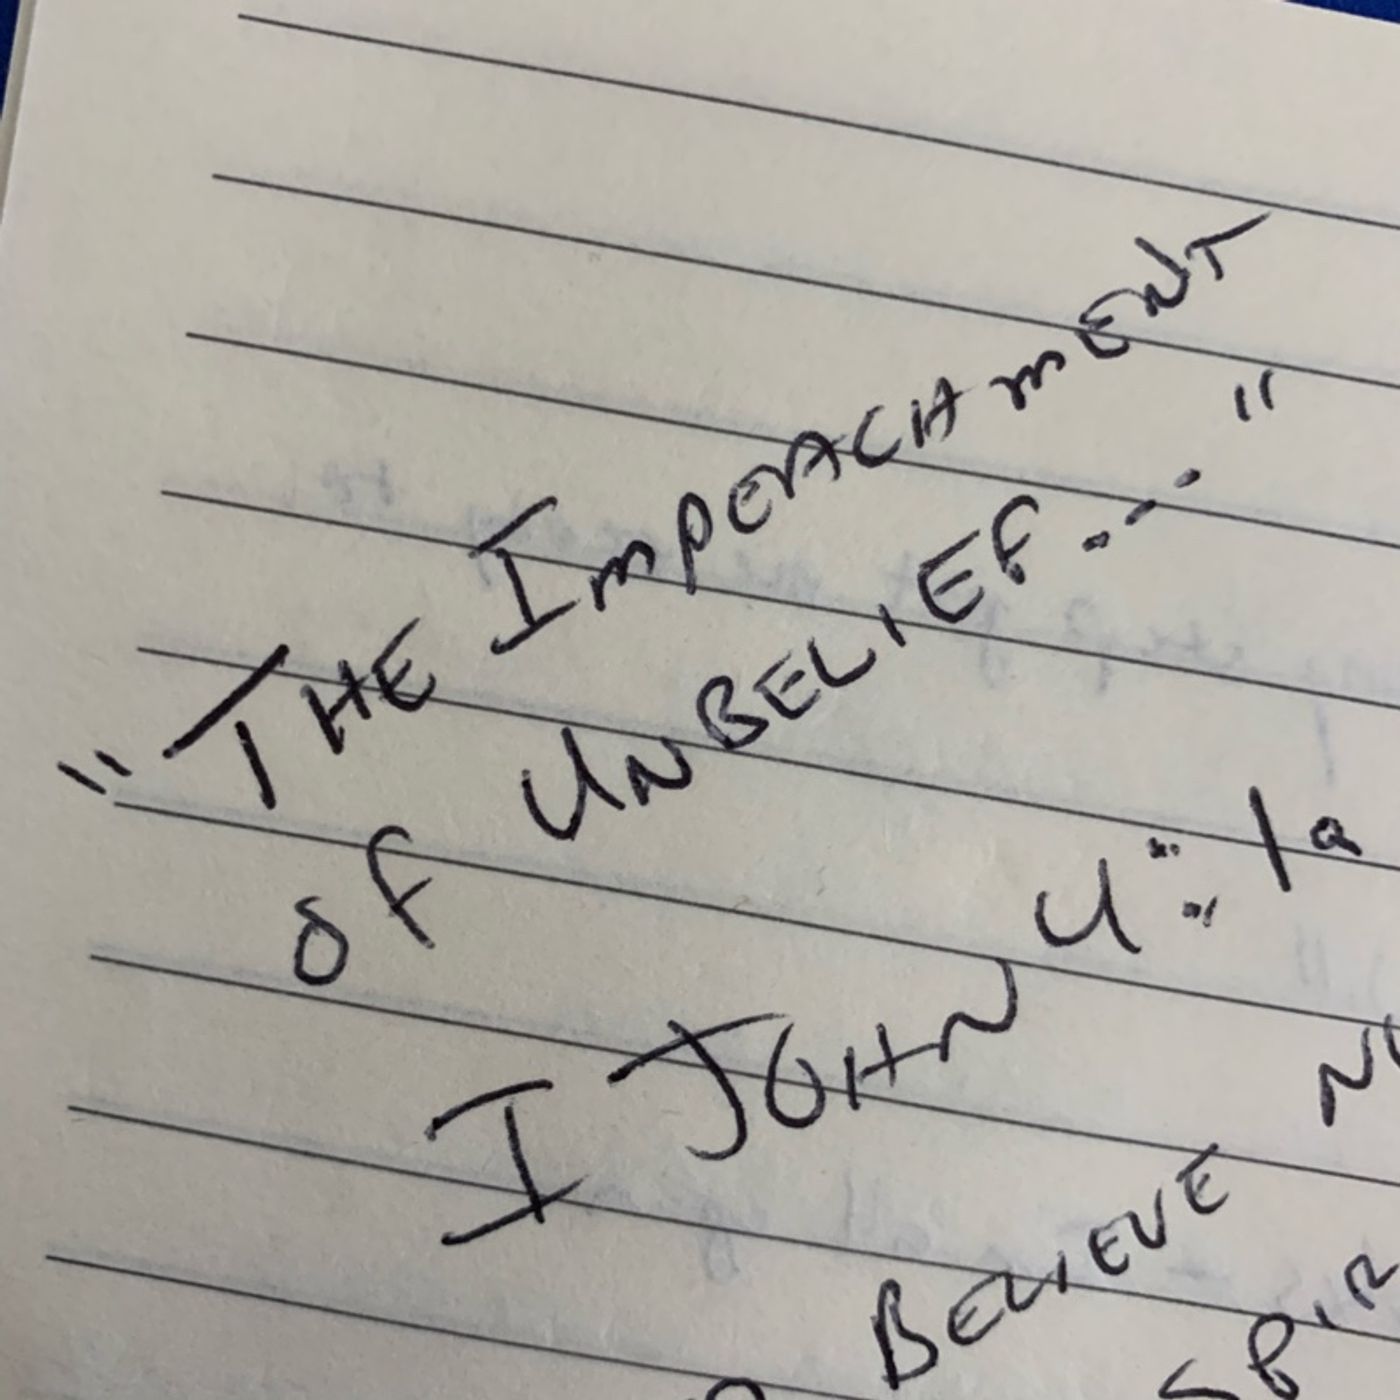 "THE IMPEACHMENT
OF UNBELIEF..."
I JOHN 4:1a
BELIEVE